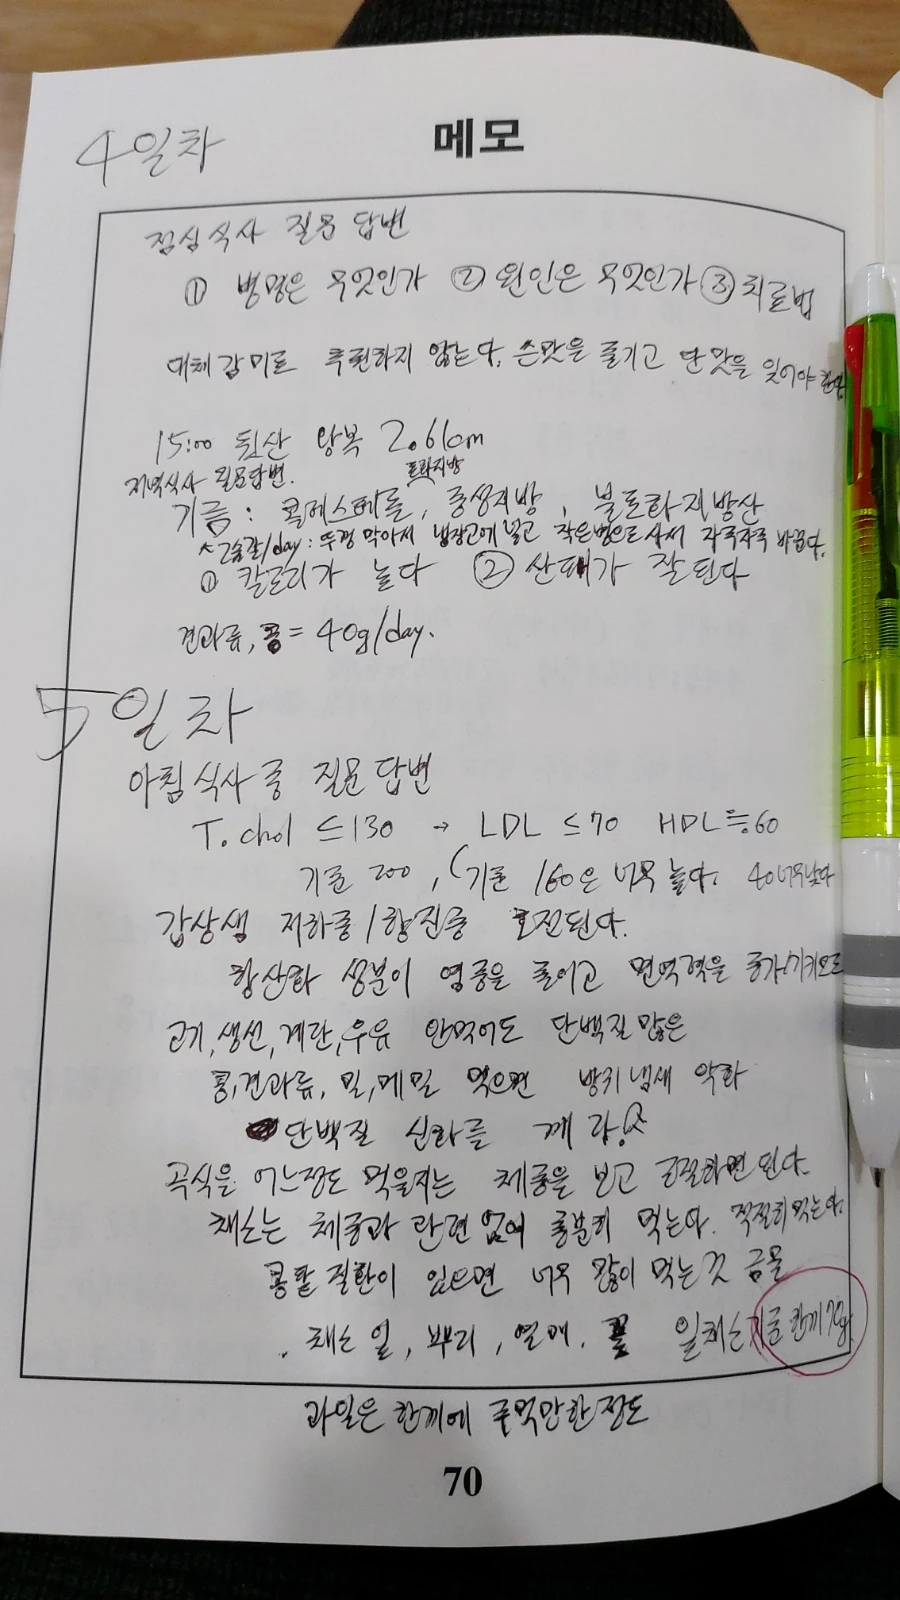 4일차
메모
점심식사 질문 답변
① 병명은 무엇인가 ② 원인은 무엇인가 ③ 치료법
대체 감미료 추천하지 않는다. 쓴맛을 즐기고 단맛을 잊어야 한다.
15:00 뒷산 왕복 2.61cm
저녁식사 질문답변.
포화지방
기름 : 콜레스테롤, 중성지방, 불포화지방산
2숟갈/day : 뚜껑 막아서 냉장고에 넣고 작은병으로 사서 자주자주 바꾼다.
① 칼로리가 높다 ② 산패가 잘 된다
견과류, 콩 = 40g/day.
5일차
아침식사 중 질문답변
T. chol ≤130 → LDL ≤70 HDL≒60
기준 200, (기준 160은 너무 높다. 40너무낮다
갑상샘 저하증/항진증 호전된다.
항산화 성분이 염증을 줄이고 면역력을 증가시키므로
고기, 생선, 계란, 우유 안먹어도 단백질 많은
콩, 견과류, 밀, 메밀 먹으면 방귀 냄새 악화
단백질 신화를 깨라!
곡식을 어느정도 먹을지는 체중을 보고 조절하면 된다.
채소는 체중과 관련 없이 충분히 먹는다. 적절히 먹는다.
콩팥 질환이 있으면 너무 많이 먹는 것 금물
채소 잎, 뿌리, 열매. 꽃 잎채소기준 한끼 70g
과일은 한끼에 주먹만한 정도
70